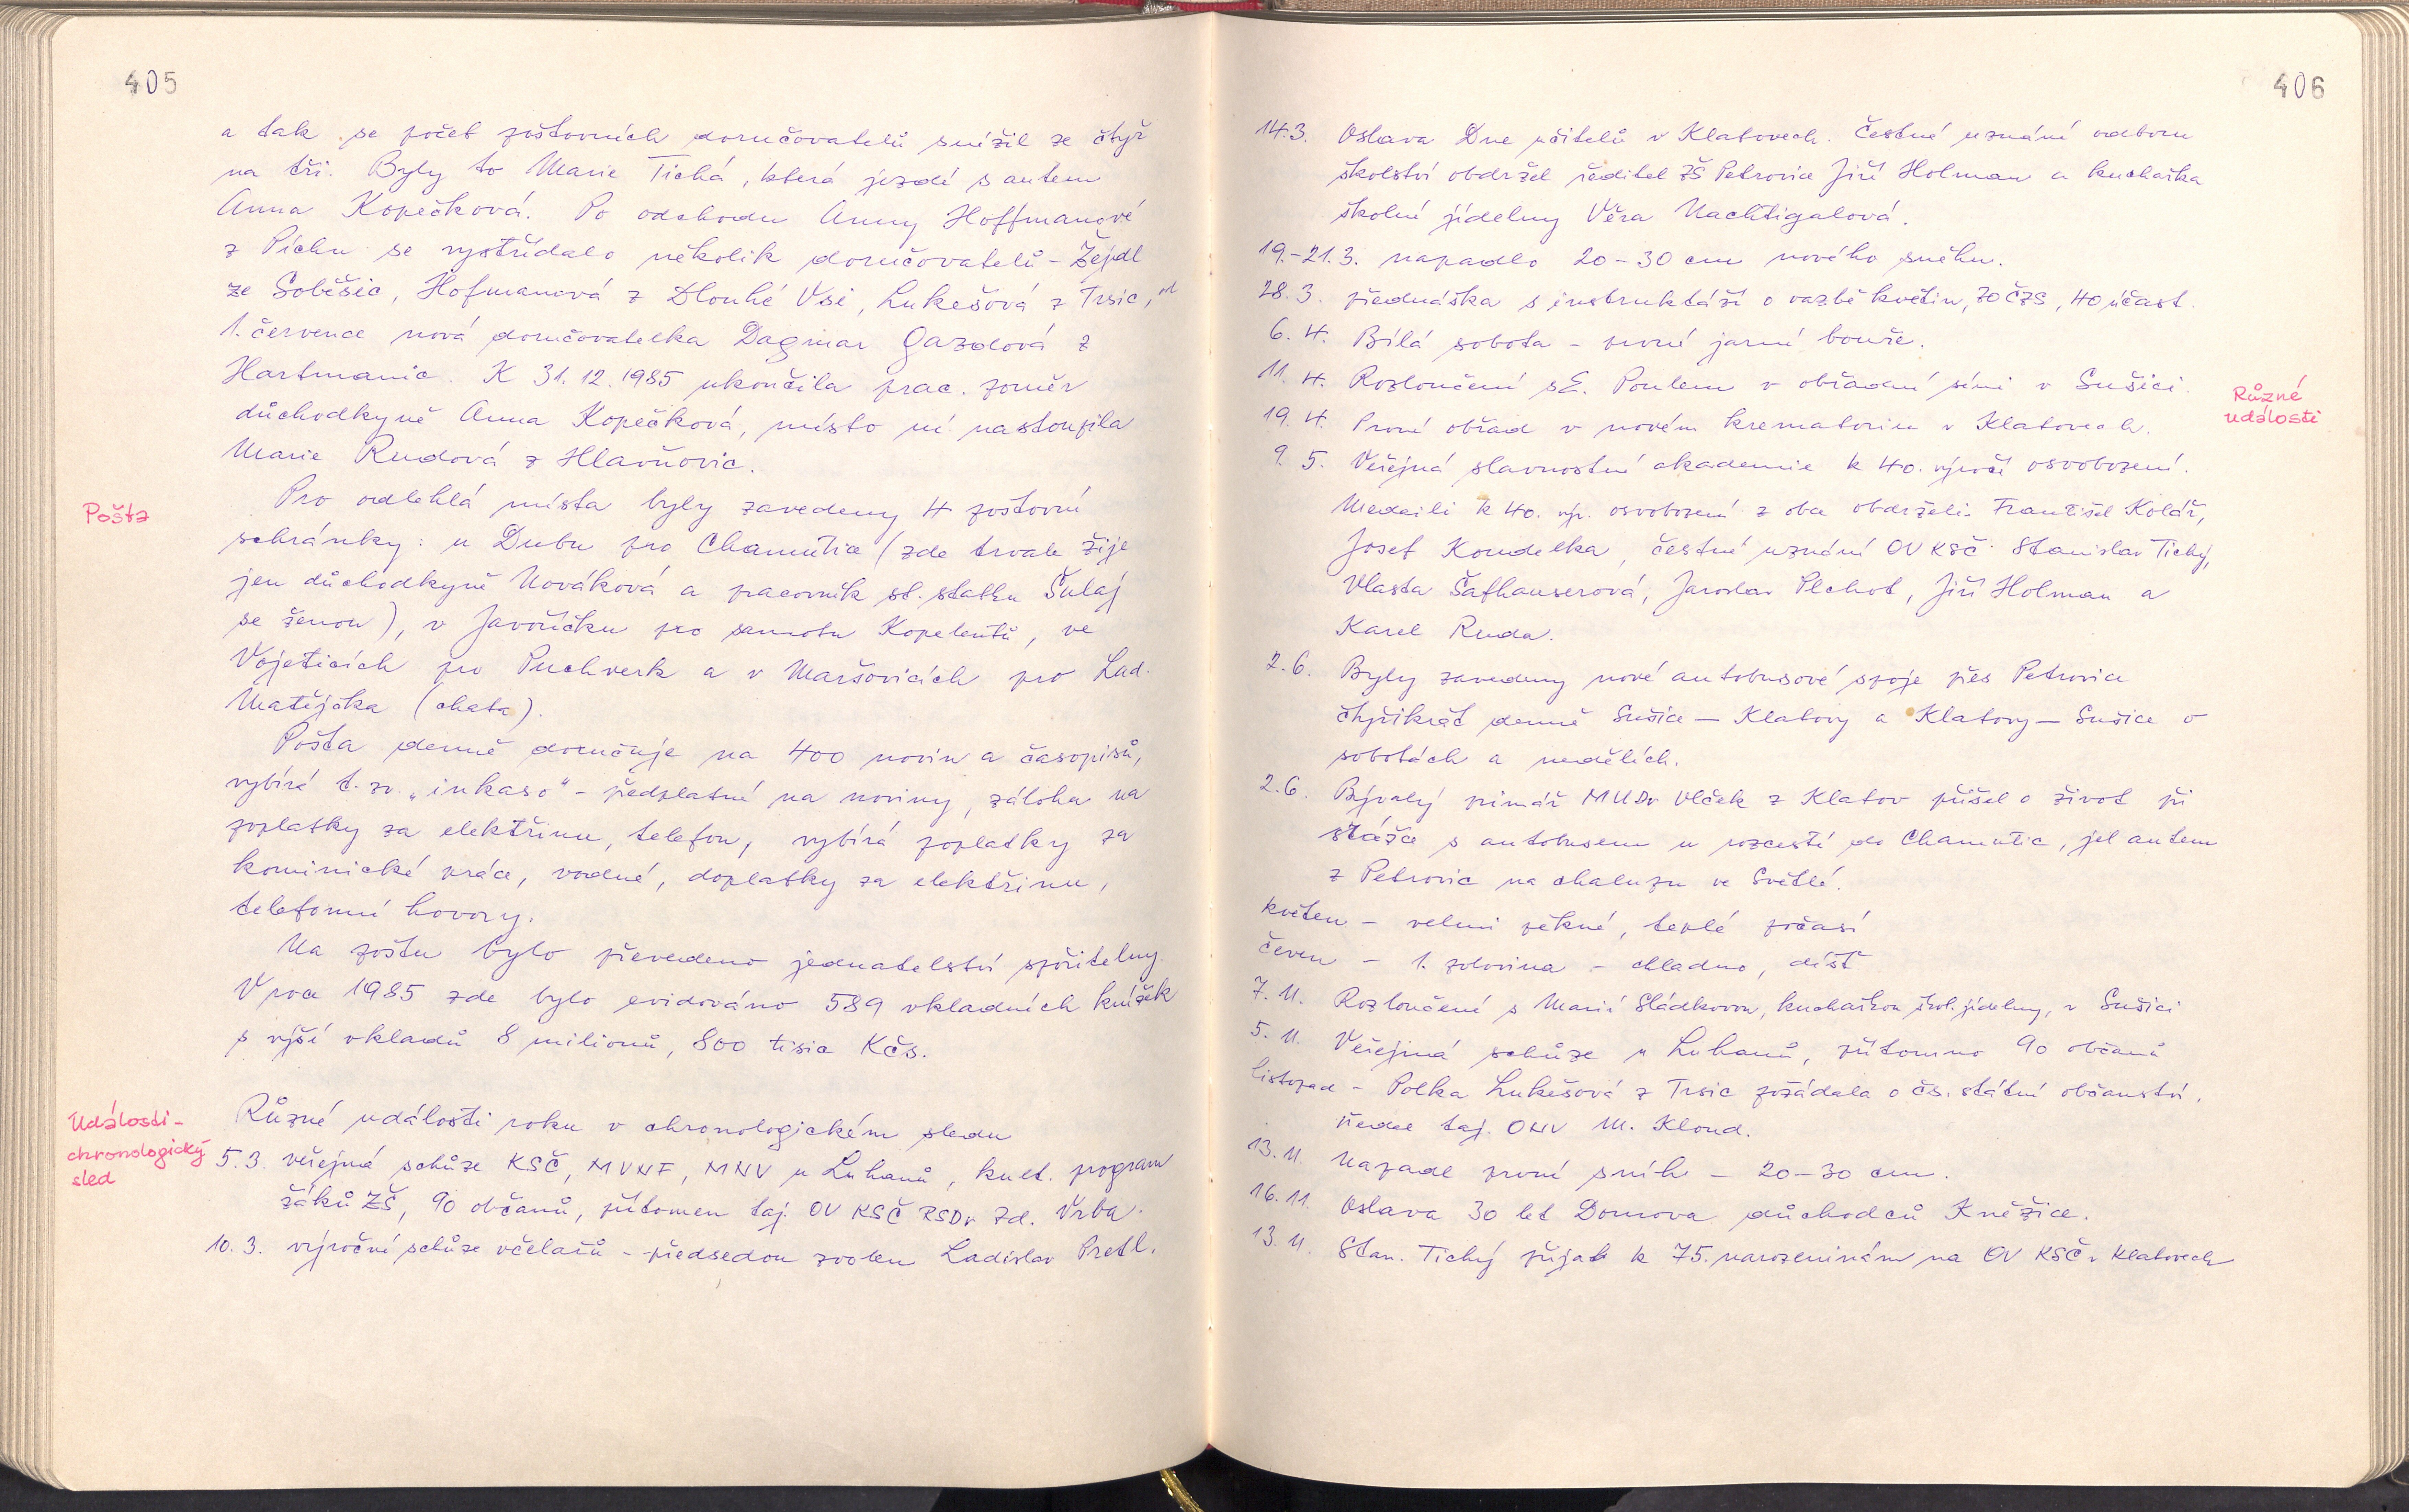 405
a tak se počet poštovních doručovatelů snížil ze čtyř
na tři. Byly to Marie Tichá, která jezdí s autem
Anna Kopečková. Po odchodu Anny Hoffmanové
z Píchu se vystřídalo několik doručovatelů - Žejdl
ze Soběšic, Hofmanová z Dlouhé Vsi, Lukešová z Trsic, od
1. července nová doručovatelka Dagmar Gazdová z
Hartmanic. K 31.12.1985 ukončila prac. poměr
důchodkyně Anna Kopečková, místo ní nastoupila
Marie Rudová z Hlavňovic.
Pošta
Pro odlehlá místa byly zavedeny 4 poštovní
schránky: u Dubu pro Chamutice (zde trvale žije
jen důchodkyně Nováková a pracovník st. statku Šulaj
se ženou), v Javoříčku pro samotu Kopelentů, ve
Vojeticích pro Puchverk a v Maršovicích pro Lad.
Matějčka (chata).
Pošta denně doručuje na 400 novin a časopisů,
vybírá t. zv. „inkaso" - předplatné na noviny, záloha na
poplatky za elektřinu, telefon, vybírá poplatky za
kominické práce, vodné, doplatky za elektřinu,
telefonní hovory.
Na poštu bylo převedeno jednatelství spořitelny.
V roce 1985 zde bylo evidováno 589 vkladních knížek
s výší vkladů 8 milionů, 800 tisíc Kčs.
Události -
chronologický
sled
Různé události roku v chronologickém sledu
5.3. veřejná schůze KSČ, MVNF, MNV u Luhanů, kult. program
žáků ZŠ, 90 občanů, přítomen taj. OV KSČ RSDr Zd. Vrba.
10. 3. výroční schůze včelařů - předsedou zvolen Ladislav Pretl.
406
14.3. Oslava Dne učitelů v Klatovech. Čestné uznání odboru
školství obdržel ředitel ZŠ Petrovice Jiří Holman a kuchařka
školní jídelny Věra Nachtigalová.
19.-21.3. napadlo 20-30 cm nového sněhu.
28.3. přednáška s instruktáží o vazbě květin, ZO ČZS, 40 účast.
6. 4. Bílá sobota - první jarní bouře.
11. 4. Rozloučení s E. Poulem v obřadní síni v Sušici.
Různé
události
19. 4. První obřad v novém krematoriu v Klatovech.
9. 5. Veřejná slavnostní akademie k 40. výročí osvobození.
Medaili k 40. výr. osvobození z obce obdrželi: František Kolář,
Josef Koudelka, čestné uznání OV KSČ: Stanislav Tichý,
Vlasta Šafhauserová, Jaroslav Plchot, Jiří Holman a
Karel Ruda.
2.6. Byly zavedeny nové autobusové spoje přes Petrovice
čtyřikrát denně Sušice - Klatovy a Klatovy - Sušice v
sobotách a nedělích.
2.6. Bývalý primář MUDr Vlček z Klatov přišel o život při
srážce s autobusem u rozcestí do Chamutic, jel autem
z Petrovic na chalupu ve Světlé.
květen - velmi pěkné, teplé počasí
červen - 1. polovina - chladno, déšť
7. 11. Rozloučení s Marií Sládkovou, kuchařkou škol. jídelny, v Sušici
5. 11. Veřejná schůze u Luhanů, přítomno 90 občanů
listopad - Polka Lukešová z Trsic požádala o čs. státní občanství.
Předal taj. ONV M. Kloud.
13. 11. Napadl první sníh - 20-30 cm.
16. 11. Oslava 30 let Domova důchodců Kněžice.
13. 11. Stan. Tichý přijat k 75. narozeninám na OV KSČ v Klatovech